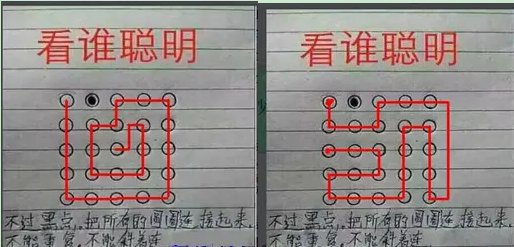 看谁聪明
不过黑点,把所有的圆圈连接起来,
不能重 不能斜着连
看谁聪明
不过黑点,把所有的圆圈连接起来,
不能重 不能斜着连